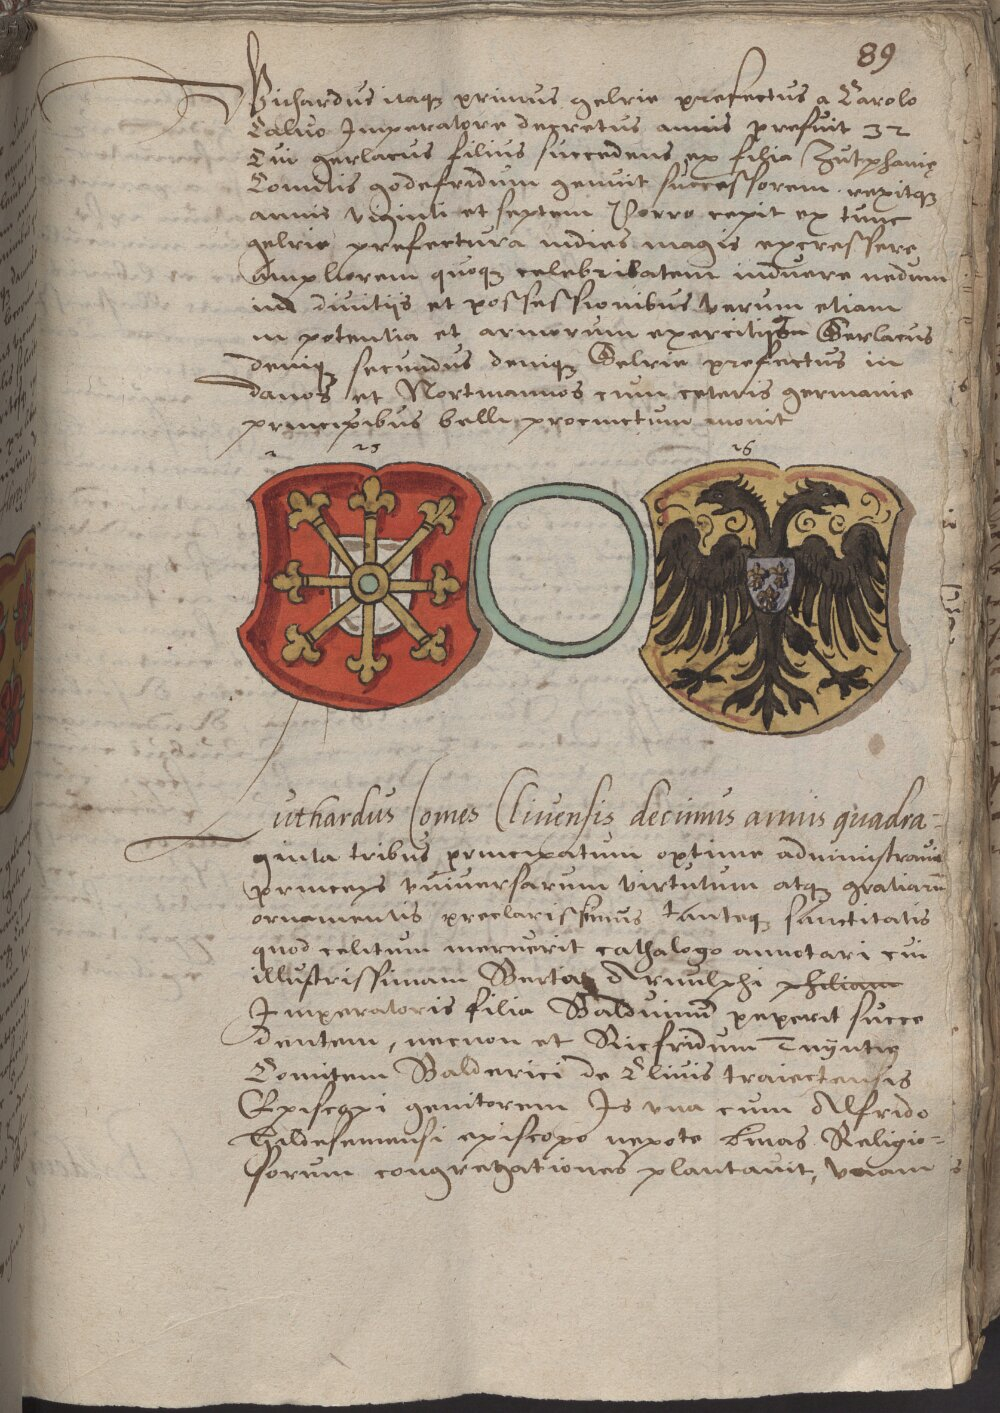 89
Vichardus itaqz primus gelrie prefectus a Carolo
Caluo Imperatore decretus annis prefuit 32
Cui gerlacus filius succedens ex filia Zutphanię
Comitis godefridum genuit successorem rexitqz
annis viginti et septem Porro cepit ex tunc
gelrie prefectura indies magis excressere
Ampliorem quoqz celebritatem induere nedum
in diuitijs et possessionibus verum etiam
in potentia et armorum exercitijs Gerlacus
deniqz secundus deniqz Gelrie prefectus in
danos et Nortmannos cum ceteris germanie
principibus belli procinctum mouit
25
26
Luthardus Comes Cliuensis decimus annis quadra-
ginta tribus principatum optime administrauit
princeps vniuersarum virtutum atqz gratiarum
ornamentis preclarissimus tanteqz sanctitatis
quod celitum meruerit cathalogo annotari cui
illustrissimam Berta Arnulphi philiam
Imperatoris filia Balduinum peperit succe
dentem, necnon et Ricfridum
Comitem Balderici de Cliuis traiectensis
Episcopi genitorem Is vna cum Alfrido
Hildesemensi episcopo nepote binas Religio-
sorum congregationes plantauit, vnam